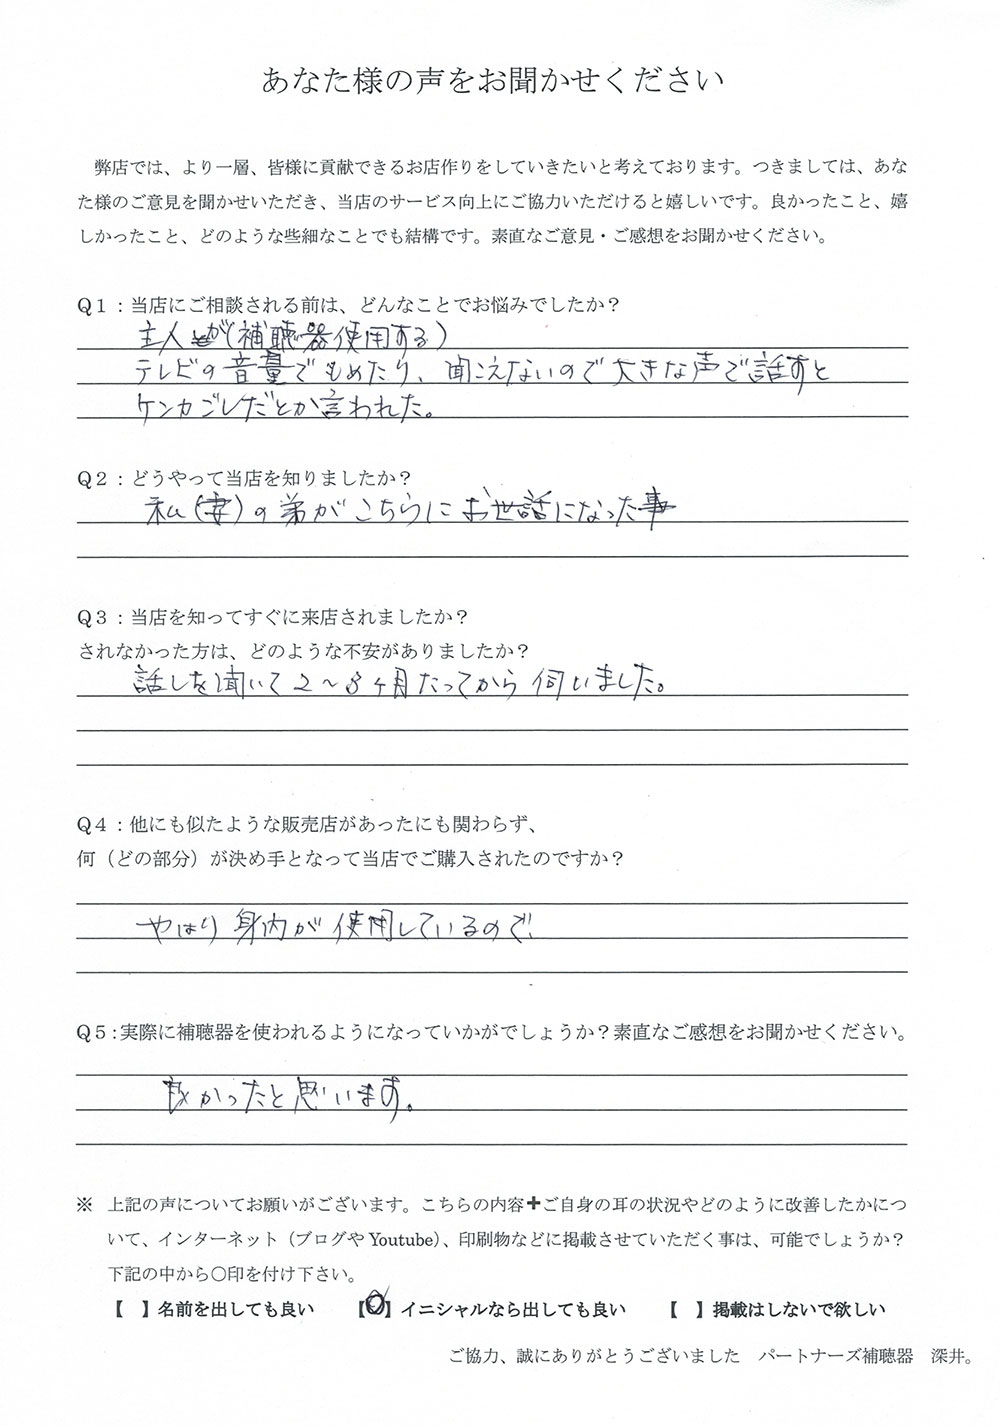 あなた様の声をお聞かせください
弊店では、より一層、皆様に貢献できるお店作りをしていきたいと考えております。つきましては、あな
た様のご意見を聞かせいただき、当店のサービス向上にご協力いただけると嬉しいです。良かったこと、嬉
しかったこと、どのような些細なことでも結構です。素直なご意見・ご感想をお聞かせください。
Q1：当店にご相談される前は、どんなことでお悩みでしたか？
主人が(補聴器使用する)
テレビの音量でもめたり、聞こえないので大きな声で話すと
ケンカごしだとか言われた。
Q2：どうやって当店を知りましたか？
私(妻)の弟がこちらにお世話になった事
Q3：当店を知ってすぐに来店されましたか？
されなかった方は、どのような不安がありましたか？
話しを聞いて2～3ヶ月たってから伺いました。
Q4：他にも似たような販売店があったにも関わらず、
何（どの部分）が決め手となって当店でご購入されたのですか？
やはり身内が使用しているので、
Q5：実際に補聴器を使われるようになっていかがでしょうか？素直なご感想をお聞かせください。
良かったと思います。
※ 上記の声についてお願いがございます。こちらの内容＋ご自身の耳の状況やどのように改善したかにつ
いて、インターネット（ブログや Youtube）、印刷物などに掲載させていただく事は、可能でしょうか？
下記の中から〇印を付け下さい。
【 】名前を出しても良い 【〇】イニシャルなら出しても良い 【 】掲載はしないで欲しい
ご協力、誠にありがとうございました パートナーズ補聴器 深井。